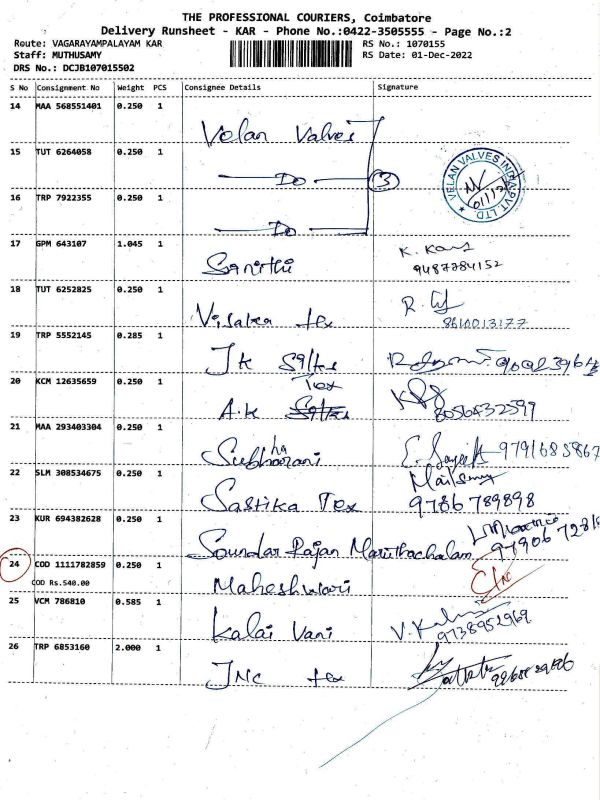 THE PROFESSIONAL COURIERS, Coimbatore
Delivery Runsheet - KAR - Phone No.:0422-3505555 - Page No.:2
Route: VAGARAYAMPALAYAM KAR RS No.: 1070155
Staff: MUTHUSAMY RS Date: 01-Dec-2022
DRS No.: DCJB107015502
S No Consignment No Weight PCS Consignee Details Signature
14 MAA 568551401 0.250 1 Velan Valves
15 TUT 6264058 0.250 1 Do 3 VELAN VALVES INDIA PVT. LTD
16 TRP 7922355 0.250 1 Do
17 GPM 643107 1.045 1 Sanithi K. 9487784152
18 TUT 6252825 0.250 1 Visaka tex R. 8610013177
19 TRP 5552145 0.285 1 Jk Silks
20 KCM 12635659 0.250 1 A.K Tex 8056432599
21 MAA 293403304 0.250 1 Subharani 9791685867
22 SLM 308534675 0.250 1 Sastika Tex 9786789898
23 KUR 694382628 0.250 1 Soundar Rajan Maruthachalam
24 COD 1111782859 0.250 1 Maheshwari
COD Rs.540.00
25 VCM 786810 0.585 1 Kalai Vani V. 9738952969
26 TRP 6853160 2.000 1 JNC tex